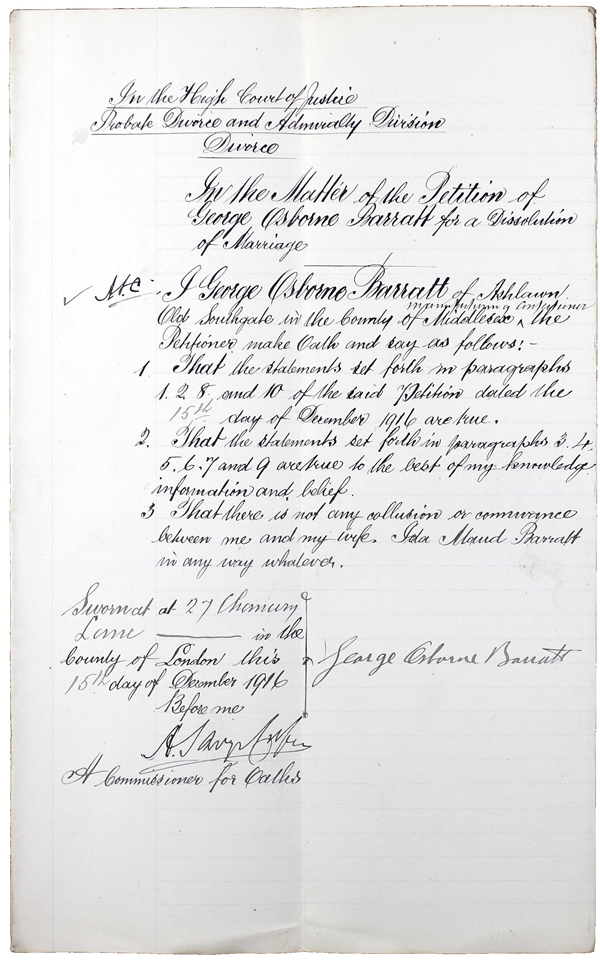 In the High Court of Justice
Probate Divorce and Admiralty Division
Divorce
In the Matter of the Petition of
George Osborne Barratt for a Dissolution
of Marriage
I George Osborne Barratt of Ashlawn
Old Southgate in the County of Middlesex ^ manufacturing Confectioner the
Petitioner make Oath and say as follows:-
1. That the statements set forth in paragraphs
1. 2. 8. and 10 of the said Petition dated the
15th day of December 1916 are true.
2. That the statements set forth in paragraphs 3. 4.
5. 6. 7 and 9 are true to the best of my knowledge
information and belief.
3 That there is not any collusion or connivance
between me and my wife. Ida Maud Barratt
in any way whatever.
Sworn at at 27 Chancery
Lane in the
County of London this
15th day of December 1916
Before me
George Osborne Barratt
A Commissioner for Oaths